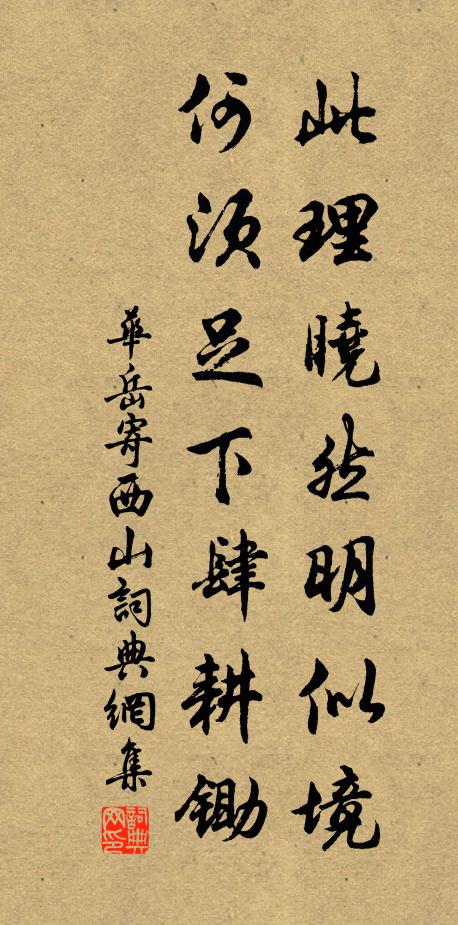 此理曉然明似境
何須足下肆耕鋤
華岳寄西山詞典網集
詞典網印